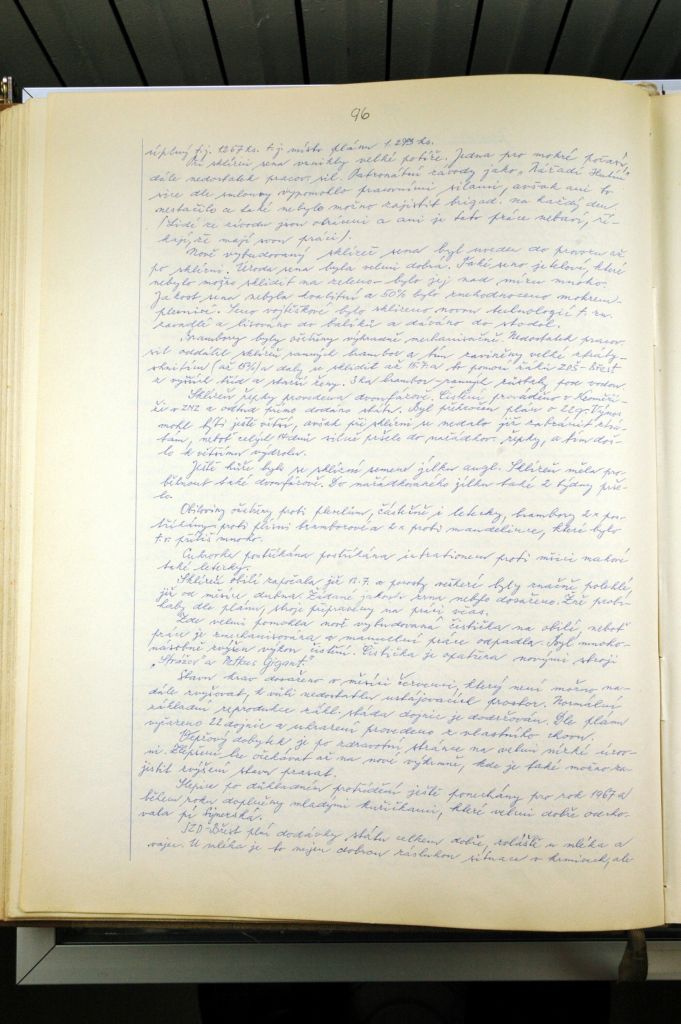 96
úplný t.j. 1267 ks. t.j. místo plánu 1.293 ks.
Při sklizni sena vznikly velké potíže. Jedna pro mokré počasí,
dále nedostatek pracov. sil. Patronátní závody jako "Nářadí Hulín"
sice dle smlouvy vypomohlo pracovními silami, avšak ani to
nestačilo a také nebylo možno zajistit brigád. na každý den
/Lidé ze závodu jsou otráveni a ani je tato práce nebaví, ří-
kají, že mají svou práci/.
Nově vybudovaný sklizeň sena byl uveden do provozu až
po sklizni. Úroda sena byla velmi dobrá. Také seno jetelové, které
nebylo možno sklidit na zeleno bylo jej nad míru mnoho.
Jakost sena nebyla kvalitní a 50% bylo znehodnoceno mokrem.
plesnivé. Seno vojtěškové bylo sklizeno novou technologií t. zn.
zavadlé a lisováno do balíků a dáváno do stodol.
Brambory byly ošetřeny výhradně mechanisačně. Nedostatek pracov.
sil oddálil sklizeň ranných brambor a tím zaviněny velké ztráty
škrobin (až 15%) a daly se sklidit až 15.9 a to pomocí žáků ZDŠ-Břest
z vyšších tříd a starší ženy. 3 ha brambor ranných zůstaly pod vodou.
Sklizeň řepky provedena dvoufázově. Čištění prováděno v Kroměří-
ži v ZNZ a odtud přímo dodáno státu. Byl překročen plán o 22 q. Výnos
mohl býti ještě větší, avšak při sklizni se nedalo již zabrániti ztrá-
tám, neboť celých 14 dní silně pršelo do nařádkov. řepky, a tím doš-
lo k většímu výdrolu.
Ještě hůře bylo se sklizní semene jílku angl. Sklizeň měla pro-
běhnout také dvoufázově. Do nařádkovaného jílku také 2 týdny prše-
lo.
Obiloviny ošetřeny proti plevelům, částečně i letecky, brambory 2x pos-
tříkány proti plísni bramborové a 2x proti mandelince, které bylo
t.r. příliš mnoho.
Cukrovka postříkána intrationem proti mšici makové
také letecky.
Sklizeň obilí započala již 12.7. a porosty některé byly značně polehlé
již od měsíce dubna. Žádané jakosti zrna nebylo dosaženo. Žně probí-
haly dle plánu, stroje připraveny na práci včas.
Zde velmi pomohla nově vybudovaná čistička na obilí, neboť
práce je zmechanisována a manuelní práce odpadla. Byl mnoho-
násobně zvýšen výkon čištění. Čistička je opatřena novými stroji
"Strážov a Petkus Gigant".
Stavu krav dosaženo v měsíci červenci, který není možno na-
dále zvyšovat, k vůli nedostatku ustájovacích prostor. Normální
základní reprodukce zákl. stáda dojnic je dodržován. Dle plánu
vyřazeno 22 dojnic a uhrazení provedeno z vlastního chovu.
Vepřový dobytek je po zdravotní stránce na velmi nízké úrov-
ni. Zlepšení lze očekávat až na nové výkrmně, kde je také možno za-
jistit zvýšení stavu prasat.
Slepice po důkladném protřídění ještě ponechány pro rok 1967 a
během roku doplněny mladými kuřičkami, které velmi dobře odcho-
vala pí Rýmerská.
JZD-Břest plní dodávky státu celkem dobře, zvláště u mléka a
vajec. U mléka je to nejen dobrou zásluhou situace v krmivech, ale